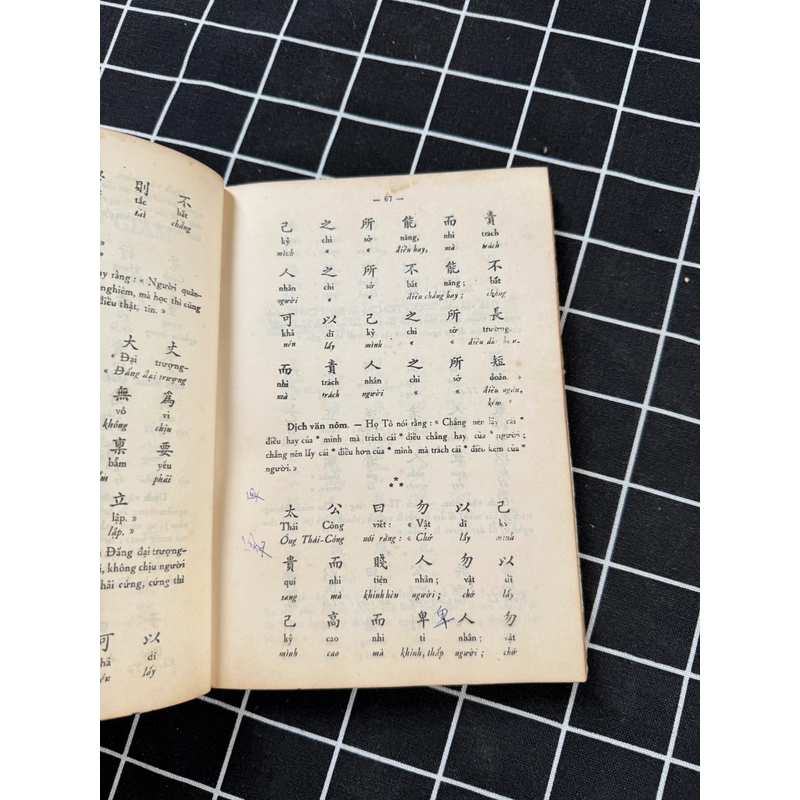 則 不
tắc bất
tài chẳng
ay rằng : « Người quân-
nghiêm, mà học thì cũng
điều thật, tin. »
大 丈
« Đại trượng-
« Đấng đại trượng
無 為
vô vi
không chịu
稟 要
bẩm yếu
phải
立
lập. »
lập. »
Đấng đại trượng-
i, không chịu người
hải cứng, cứng thì
可 以
khả dĩ
lấy
— 67 —
己 之 所 能 而 責
kỷ chi sở năng, nhi trách
mình « « điều hay, mà trách
人 之 所 不 能 不
nhân chi sở bất năng ; bất
người « « điều chẳng hay ; chẳng
可 以 己 之 所 長
khả dĩ kỷ chi sở trường,
nên lấy mình « « điều dài hơn,
而 責 人 之 所 短
nhi trách nhân chi sở đoản. »
mà trách người « « điều ngắn,
kém. »
Dịch văn nôm. — Họ Tô nói rằng : « Chẳng nên lấy cái *
điều hay của * mình mà trách cái * điều chẳng hay của * người ;
chẳng nên lấy cái * điều hơn của * mình mà trách cái * điều kém của *
người. »
* * *
太 公 曰 勿 以 己
Thái Công viết : « Vật dĩ kỷ
Ông Thái-Công nói rằng : « Chớ lấy mình
貴 而 賤 人 勿 以
quí nhi tiện nhân ; vật dĩ
sang mà khinh hèn người ; chớ lấy
己 高 而 卑 卑 人 勿
kỷ cao nhi ti nhân ; vật
mình cao mà khinh, thấp người ; chớ